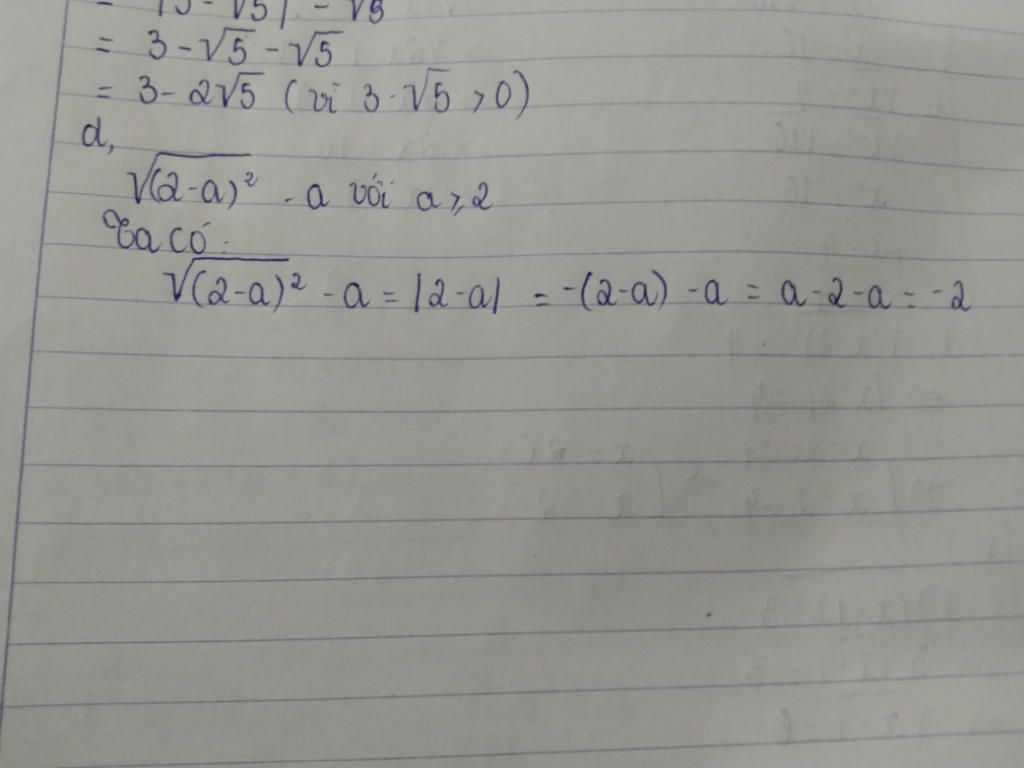 = |3 - √5| - √5
= 3 - √5 - √5
= 3 - 2√5 (vì 3 - √5 > 0)
d,
√(2-a)² - a với a ≥ 2
Ta có:
√(2-a)² - a = |2-a| = -(2-a) - a = a - 2 - a = -2